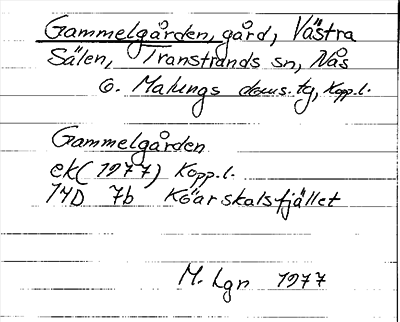 Gammelgården, gård, Västra
Sälen, Transtrands sn, Nås
o. Malungs doms.tg, Kopp.l.
Gammelgården
ek (1977) Kopp.l.
14D 7b Köarskalsfjället
M. Lgn 1977